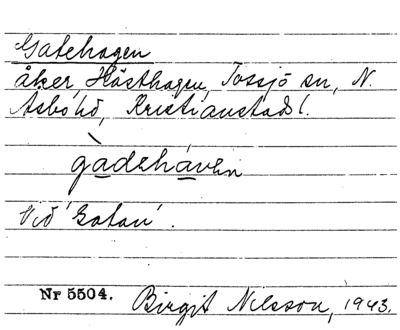 Gatehagen
åker, Hästhagen, Tossjö sn, N.
Åsbo hd, Kristianstads l.
gàdehávėn
Vid 'Gatan'.
Nr 5504. Birgit Nilsson, 1943.